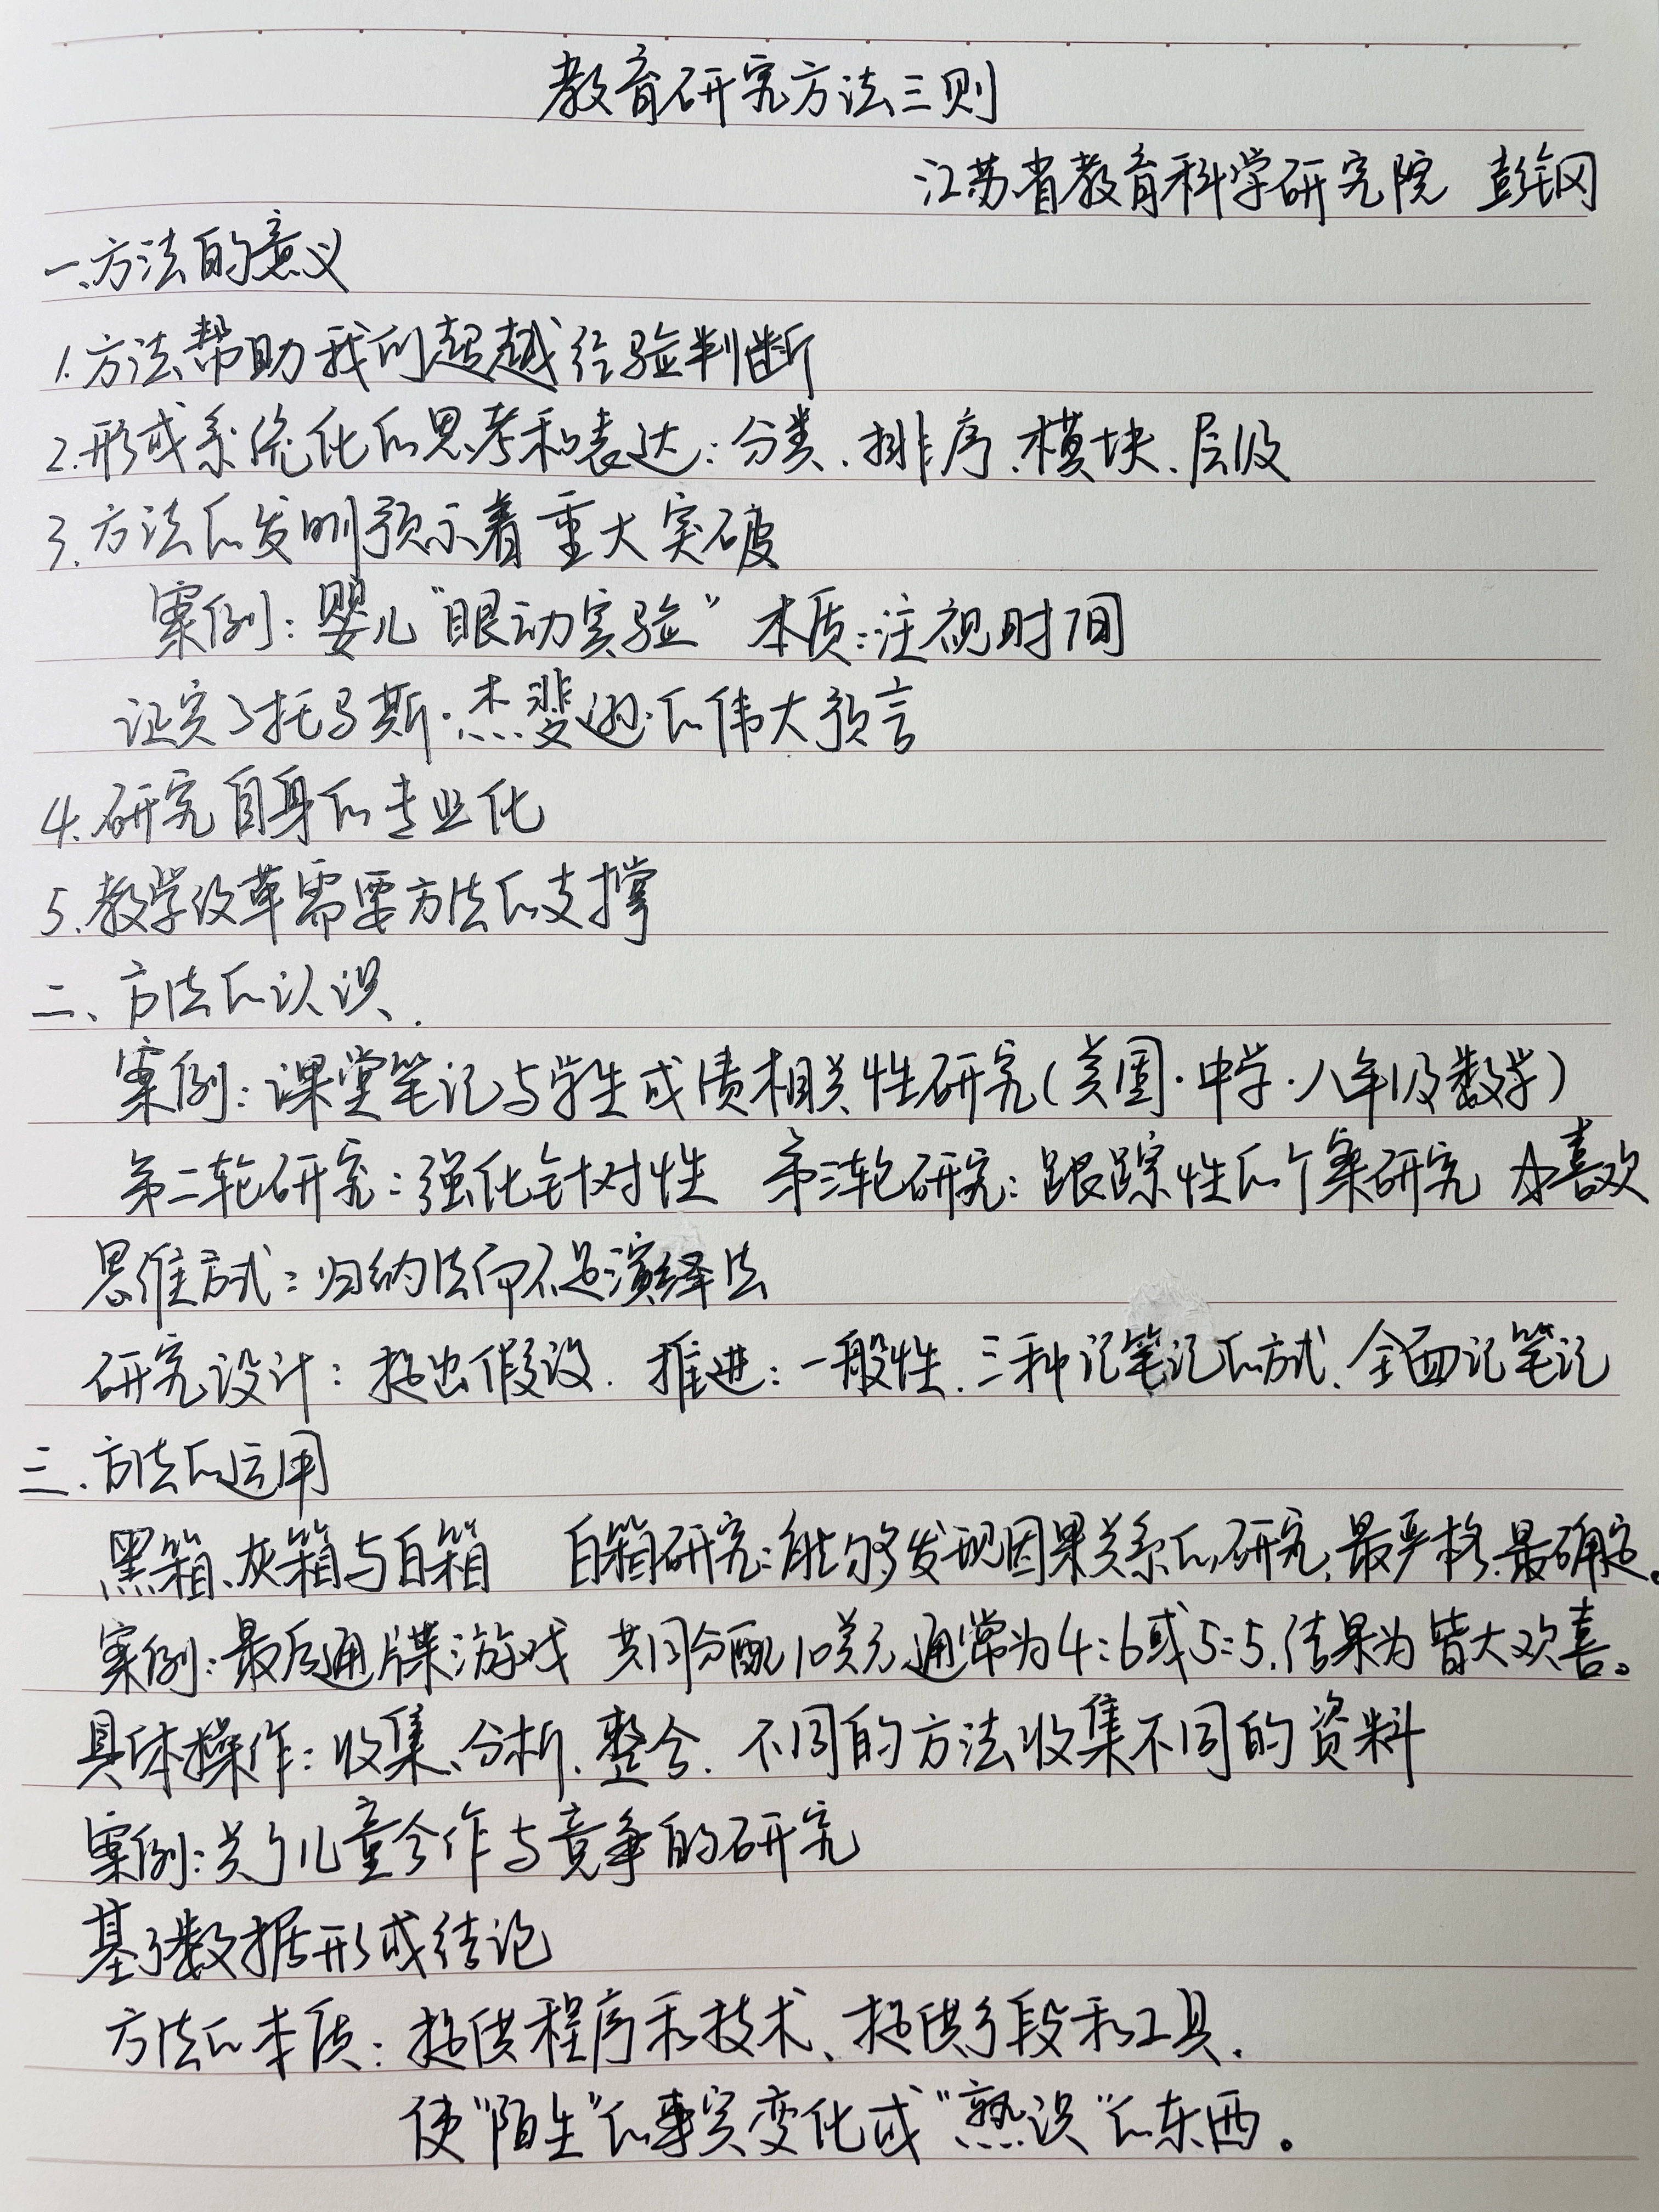 教育研究方法三则
江苏省教育科学研究院 彭钢
一、方法的意义
1.方法帮助我们超越经验判断
2.形成系统化的思考和表达:分类、排序、模块、层级
3.方法的发明预示着重大突破
案例:婴儿“眼动实验” 本质:注视时间
证实了托马斯·杰斐逊的伟大预言
4.研究自身的专业化
5.教学改革需要方法的支撑
二、方法的认识.
案例:课堂笔记与学生成绩相关性研究(美国·中学·八年级数学)
第二轮研究:强化针对性 第三轮研究:跟踪性的个案研究 喜欢
思维方式:归纳法而不是演绎法
研究设计:提出假设. 推进:一般性.三种记笔记的方式、全面记笔记
三.方法的运用
黑箱、灰箱与白箱 白箱研究:能够发现因果关系的研究,最严格.最确定。
案例:最后通牒游戏 共同分配10美元,通常为4:6或5:5,结果为皆大欢喜。
具体操作:收集、分析、整合. 不同的方法收集不同的资料
案例:关于儿童合作与竞争的研究
基于数据形成结论
方法的本质:提供程序和技术、提供手段和工具.
使“陌生”的事实变化成“熟识”的东西。